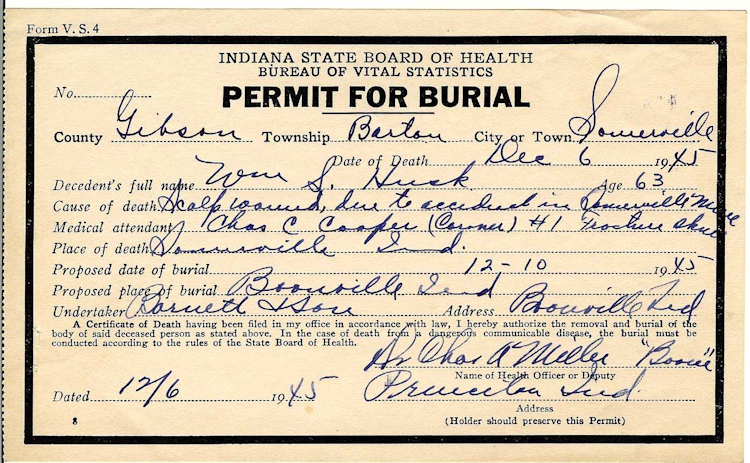 Form V. S. 4
INDIANA STATE BOARD OF HEALTH
BUREAU OF VITAL STATISTICS
No.
PERMIT FOR BURIAL
County Gibson Township Barton City or Town Somerville
Date of Death Dec 6 1945
Decedent's full name Wm S. Husk Age 63
Cause of death Scalp wound, due to accident in Somerville Mine
Medical attendant Chas C Cooper (Coroner) #1 Fracture Skull
Place of death Somerville Ind.
Proposed date of burial 12-10 1945
Proposed place of burial Boonville Ind
Undertaker Barnett & Son Address Boonville Ind
A Certificate of Death having been filed in my office in accordance with law, I hereby authorize the removal and burial of the
body of said deceased person as stated above. In the case of death from a dangerous communicable disease, the burial must be
conducted according to the rules of the State Board of Health.
Dr Chas A Miller
Name of Health Officer or Deputy
Princeton Ind.
Dated 12/6 1945
Address
8
(Holder should preserve this Permit)